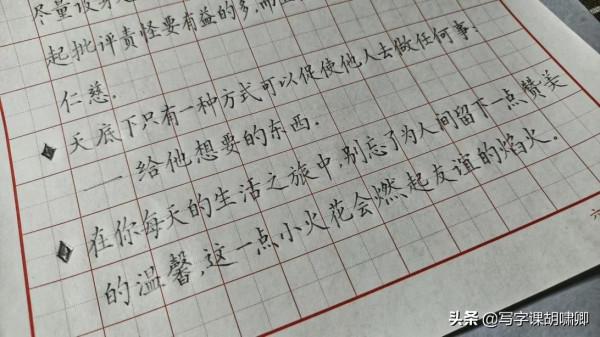 尽量设身处
起批评责怪要有益的多,而且
仁慈.
◆天底下只有一种方式可以促使他人去做任何事:
——给他想要的东西.
◆在你每天的生活之旅中,别忘了为人间留下一点赞美
的温馨,这一点小火花会燃起友谊的焰火.
头条 @写字课胡啸卿